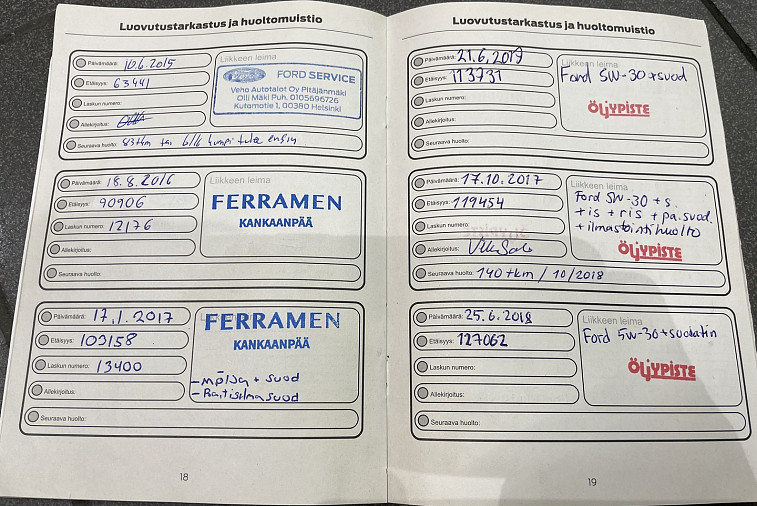 Luovutustarkastus ja huoltomuistio
Päivämäärä: 10.6.2015
Etäisyys: 63441
Laskun numero:
Allekirjoitus:
Seuraava huolto: 83tkm tai 6/16 kumpi tulee ensin
Liikkeen leima
Ford FORD SERVICE
Veho Autotalot Oy Pitäjänmäki
Olli Mäki Puh. 0105696726
Kutomotie 1, 00380 Helsinki
Päivämäärä: 18.8.2016
Etäisyys: 90906
Laskun numero: 12176
Allekirjoitus:
Seuraava huolto:
Liikkeen leima
FERRAMEN
KANKAANPÄÄ
Päivämäärä: 17.1.2017
Etäisyys: 102158
Laskun numero: 13400
Allekirjoitus:
Seuraava huolto:
FERRAMEN
KANKAANPÄÄ
- möljy + suod
- Raitisilma suod
18
Luovutustarkastus ja huoltomuistio
Päivämäärä: 21.6.2017
Etäisyys: 113731
Laskun numero:
Allekirjoitus:
Seuraava huolto:
Liikkeen leima
Ford 5W-30 + suod
ÖLJYPISTE
Päivämäärä: 17.10.2017
Etäisyys: 119454
Laskun numero:
Allekirjoitus:
Seuraava huolto: 140 tkm / 10/2018
Liikkeen leima
Ford 5W-30 + s.
+ is + ris + pa.suod.
+ ilmastointihuolto
ÖLJYPISTE
Päivämäärä: 25.6.2018
Etäisyys: 127062
Laskun numero:
Allekirjoitus:
Seuraava huolto:
Liikkeen leima
Ford 5W-30 + suodatin
ÖLJYPISTE
19